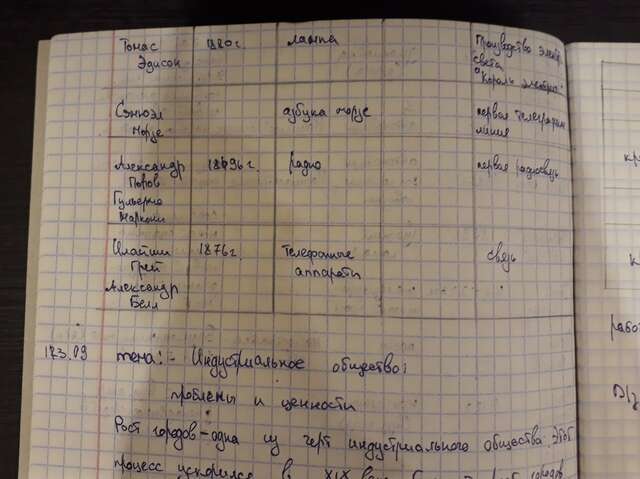 Томас 1880г. лампа Производство электр.
Эдисон света
"Король электри
Сэмюэл азбука морзе первая телеграфн
Морзе линия
Александр 1896г. радио первая радиосвязь
Попов
Гульермо
Маркони
Илайша 1876г. Телефонные связь
Грей аппараты
Александр
Белл
работ
Д/з
23.09 тема: - Индустриальное общество:
проблемы и ценности
Рост городов - одна из черт индустриального общества. Этот
процесс ускорился в XIX